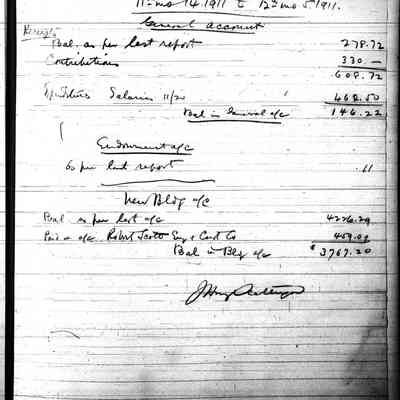 11th mo 14 1911 to 12th mo 5 1911.
General Account
Receipts
Bal. as per last report 278.72
Contributions 330.—
608.72
Salaries 11/20 462.50
Bal in General a/c 146.22
Endowment a/c
as per last report "
New Bldg a/c
Bal as per last a/c 4226.29
Paid on a/c Robert Scott Eng & Const Co 459.09
Bal in Bldg a/c $3767.20